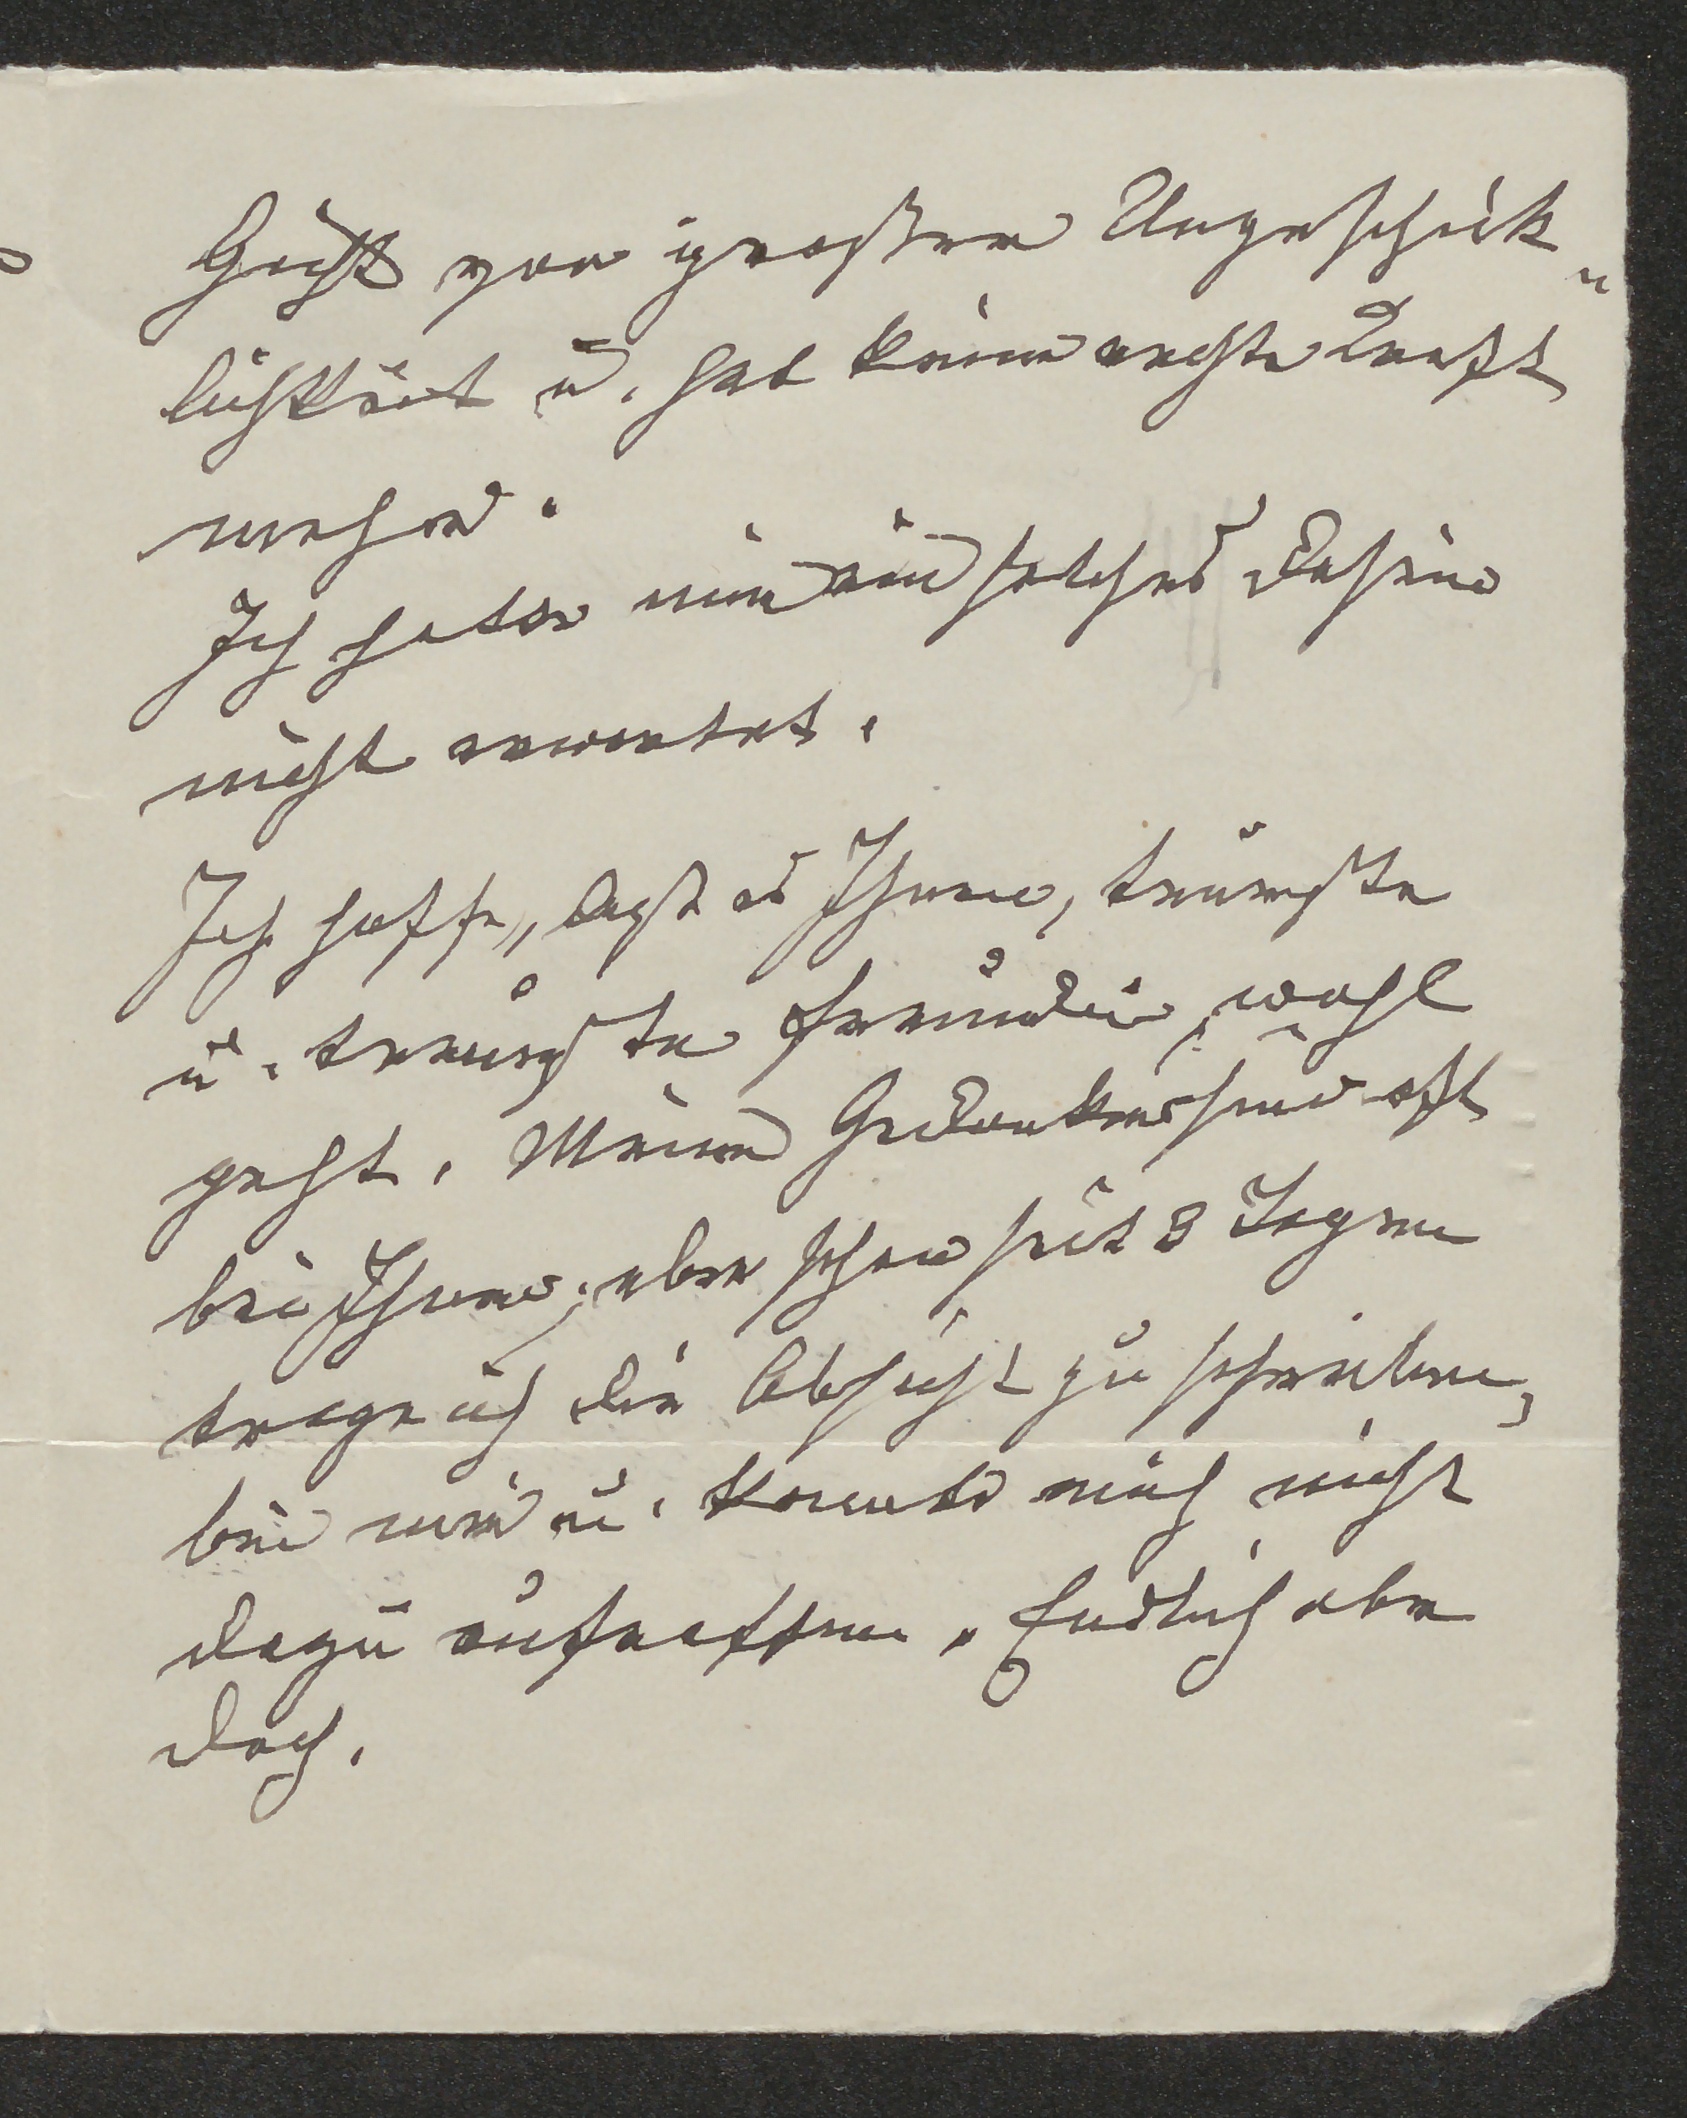 Gicht von großer Ungeschick„
lichkeit u. hab keine rechte Kraft
mehr.
Ich hatte mir ein solches Dasein
nicht erwartet.
Ich hoffe, daß es Ihnen, teuerste
u. treueste Freundin, wohl
geht. Meine Gedanken sind oft
bei Ihnen; aber schon seit 8 Tagen
trage ich die Absicht zu schreiben,
bei mir u. konnte mich nicht
dazu aufraffen. Endlich aber
doch.